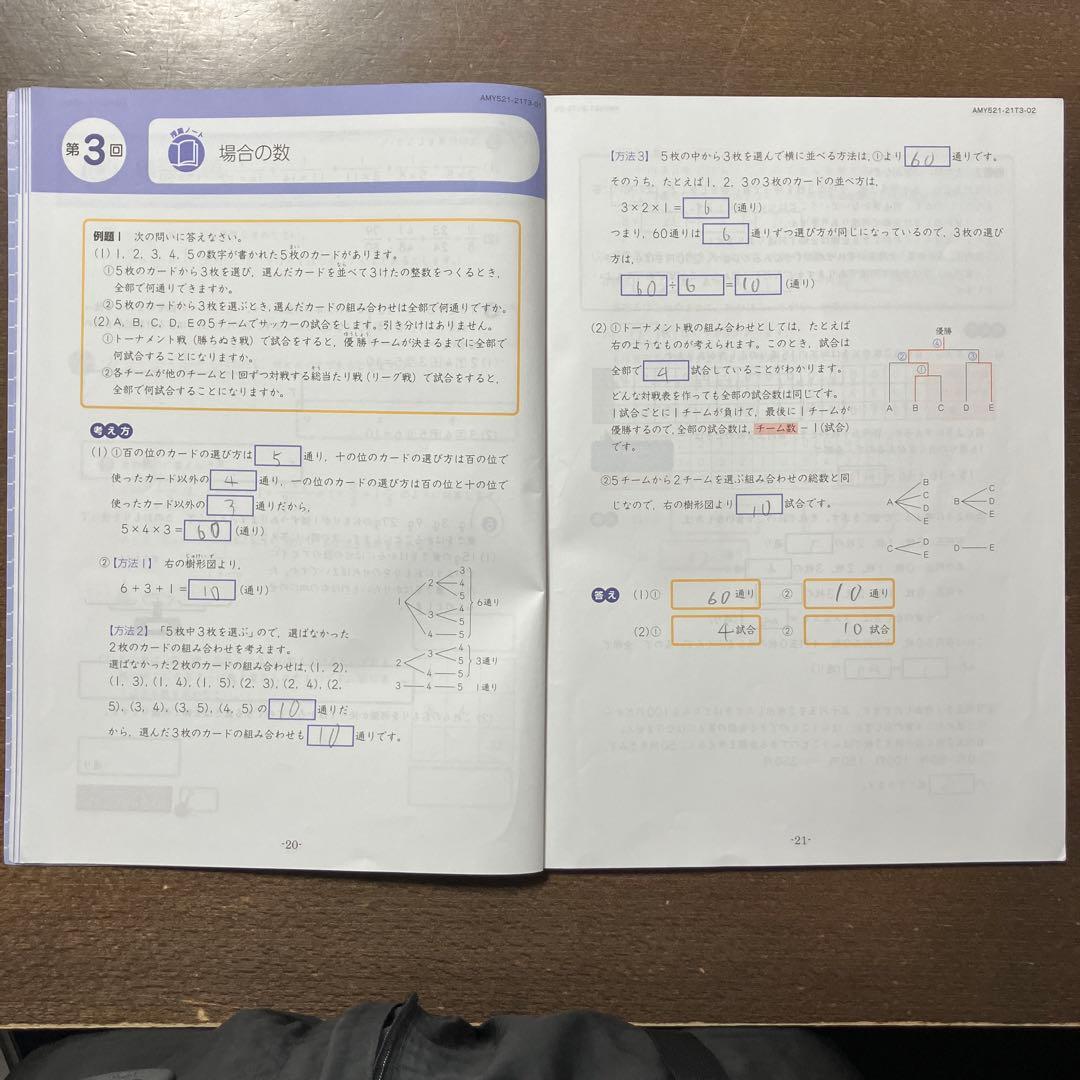 AMY521-21T3-01
第3回
授業ノート
場合の数
例題1 次の問いに答えなさい。
(1) 1, 2, 3, 4, 5の数字が書かれた5枚のカードがあります。
①5枚のカードから3枚を選び, 選んだカードを並べて3けたの整数をつくるとき,
全部で何通りできますか。
②5枚のカードから3枚を選ぶとき, 選んだカードの組み合わせは全部で何通りですか。
(2) A, B, C, D, Eの5チームでサッカーの試合をします。引き分けはありません。
①トーナメント戦 (勝ちぬき戦) で試合をすると, 優勝チームが決まるまでに全部で
何試合することになりますか。
②各チームが他のチームと1回ずつ対戦する総当たり戦 (リーグ戦) で試合をすると,
全部で何試合することになりますか。
考え方
(1) ①百の位のカードの選び方は 5 通り, 十の位のカードの選び方は百の位で
使ったカード以外の 4 通り, 一の位のカードの選び方は百の位と十の位で
使ったカード以外の 3 通りだから,
5×4×3= 60 (通り)
②【方法1】 右の樹形図より,
6+3+1= 10 (通り)
1 2 3 4 5 3 4 5 4 5 6通り
2 3 4 5 4 5 3通り
3 4 5 1通り
【方法2】 「5枚中3枚を選ぶ」ので, 選ばなかった
2枚のカードの組み合わせを考えます。
選ばなかった2枚のカードの組み合わせは, (1, 2),
(1, 3), (1, 4), (1, 5), (2, 3), (2, 4), (2,
5), (3, 4), (3, 5), (4, 5) の 10 通りだ
から, 選んだ3枚のカードの組み合わせも 10 通りです。
-20-
AMY521-21T3-02
【方法3】 5枚の中から3枚を選んで横に並べる方法は, ①より 60 通りです。
そのうち, たとえば1, 2, 3の3枚のカードの並べ方は,
3×2×1= 6 (通り)
つまり, 60通りは 6 通りずつ選び方が同じになっているので, 3枚の選び
方は,
60 ÷ 6 = 10 (通り)
(2) ①トーナメント戦の組み合わせとしては, たとえば
右のようなものが考えられます。このとき, 試合は
全部で 4 試合していることがわかります。
どんな対戦表を作っても全部の試合数は同じです。
1試合ごとに1チームが負けて, 最後に1チームが
優勝するので, 全部の試合数は, チーム数−1(試合)
です。
優勝
④
② ③
①
A B C D E
②5チームから2チームを選ぶ組み合わせの総数と同
じなので, 右の樹形図より 10 試合です。
A B C D E
B C D E
C D E
D E
答え (1)① 60 通り ② 10 通り
(2)① 4 試合 ② 10 試合
-21-